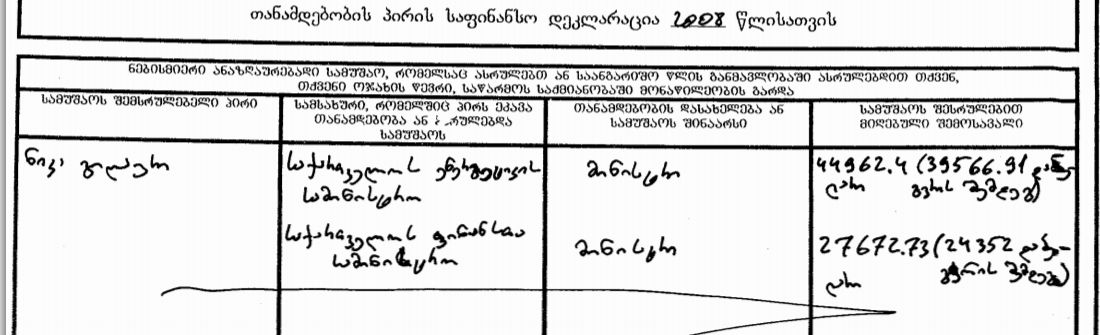 თანამდებობის პირის საფინანსო დეკლარაცია 2008 წლისათვის
ნებისმიერი ანაზღაურებადი სამუშაო, რომელსაც ასრულებთ ან საანგარიშო წლის განმავლობაში ასრულებდით თქვენ,
თქვენი ოჯახის წევრი, საწარმოს საქმიანობაში მონაწილეობის გარდა
სამუშაოს შემსრულებელი პირი
სამსახური, რომელშიც პირს ეკავა
თანამდებობა ან ასრულებდა
სამუშაოს
თანამდებობის დასახელება ან
სამუშაოს შინაარსი
სამუშაოს შესრულებით
მიღებული შემოსავალი
ნიკა გილაური
საქართველოს ენერგეტიკის
სამინისტრო
მინისტრი
44962.4 (39566.91 დაბე-
ლარი გვრის შემდეგ)
საქართველოს ფინანსთა
სამინისტრო
მინისტრი
27672.73 (24352 დაბე-
ლარი გვრის შემდეგ)